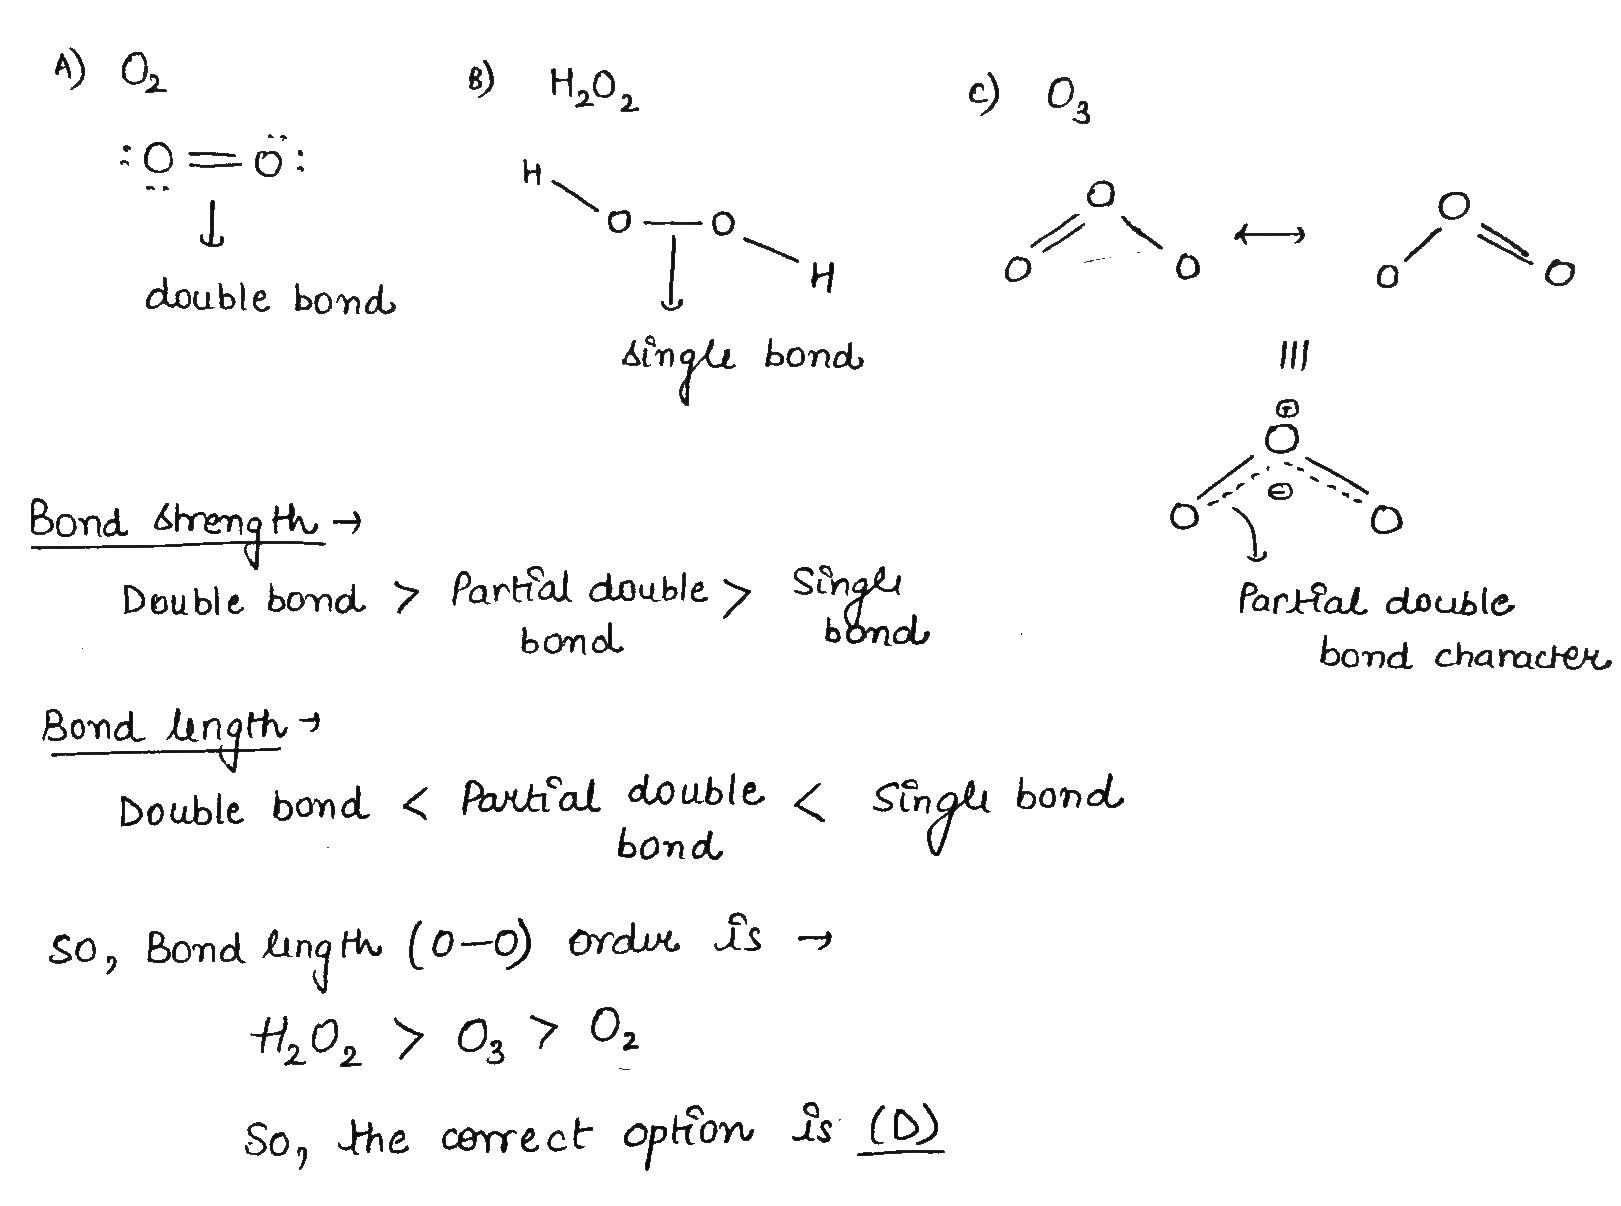 A) O₂
B) H₂O₂
C) O₃
:O=O:
double bond
H
O—O
H
single bond
O
O O
↔
O
O O
≡
⊕
O
⊖
O O
Partial double
bond character
Bond strength →
Double bond > Partial double > Single
bond bond
Bond length →
Double bond < Partial double < Single bond
bond
So, Bond length (O—O) order is →
H₂O₂ > O₃ > O₂
So, the correct option is (D)